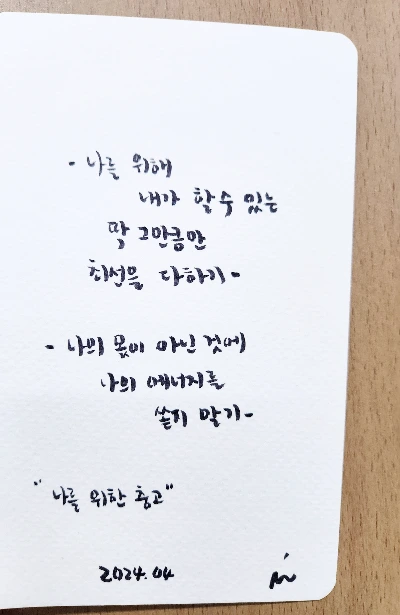 - 나를 위해
내가 할 수 있는
딱 그만큼만
최선을 다하기 -
- 나의 몫이 아닌 것에
나의 에너지를
쏟지 말기 -
"나를 위한 충고"
2024.04